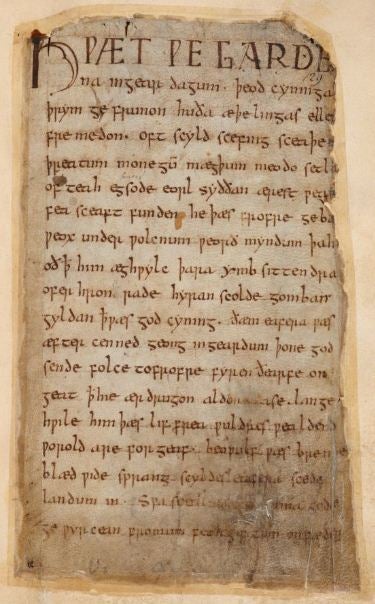 HǷÆT ǷE GARDE
na in gear dagum . þeod cyninga
þrym ge frunon huða æþelingas elle
fre medon . oft scyld scefing sceaþe
þreatum monegū mægþum meodo setl
of teah egsode eorl syððan ærest ƿear
fea sceaft funden he þæs frofre geba
ƿeox under ƿolcnum ƿeorð myndum þah
oð ꝥ him æghƿylc þara ymb sittendra
ofer hron rade hyran scolde gomban
gyldan ꝥ ƿæs god cyning . ðæm eafera ƿæs
æfter cenned geong in geardum þone god
sende folce tofrofre fyren ðearfe on
geat ꝥ hie ær drugon aldor ase . lange
hƿile him þæs lif frea ƿuldres ƿealdend
ƿorold are for geaf . beoƿulf ƿæs breme
blæd ƿide sprang scyldes eafera scede
landum in . Sƿa sceal guma gode
ge ƿyrcean fromum feoh giftum on fæder